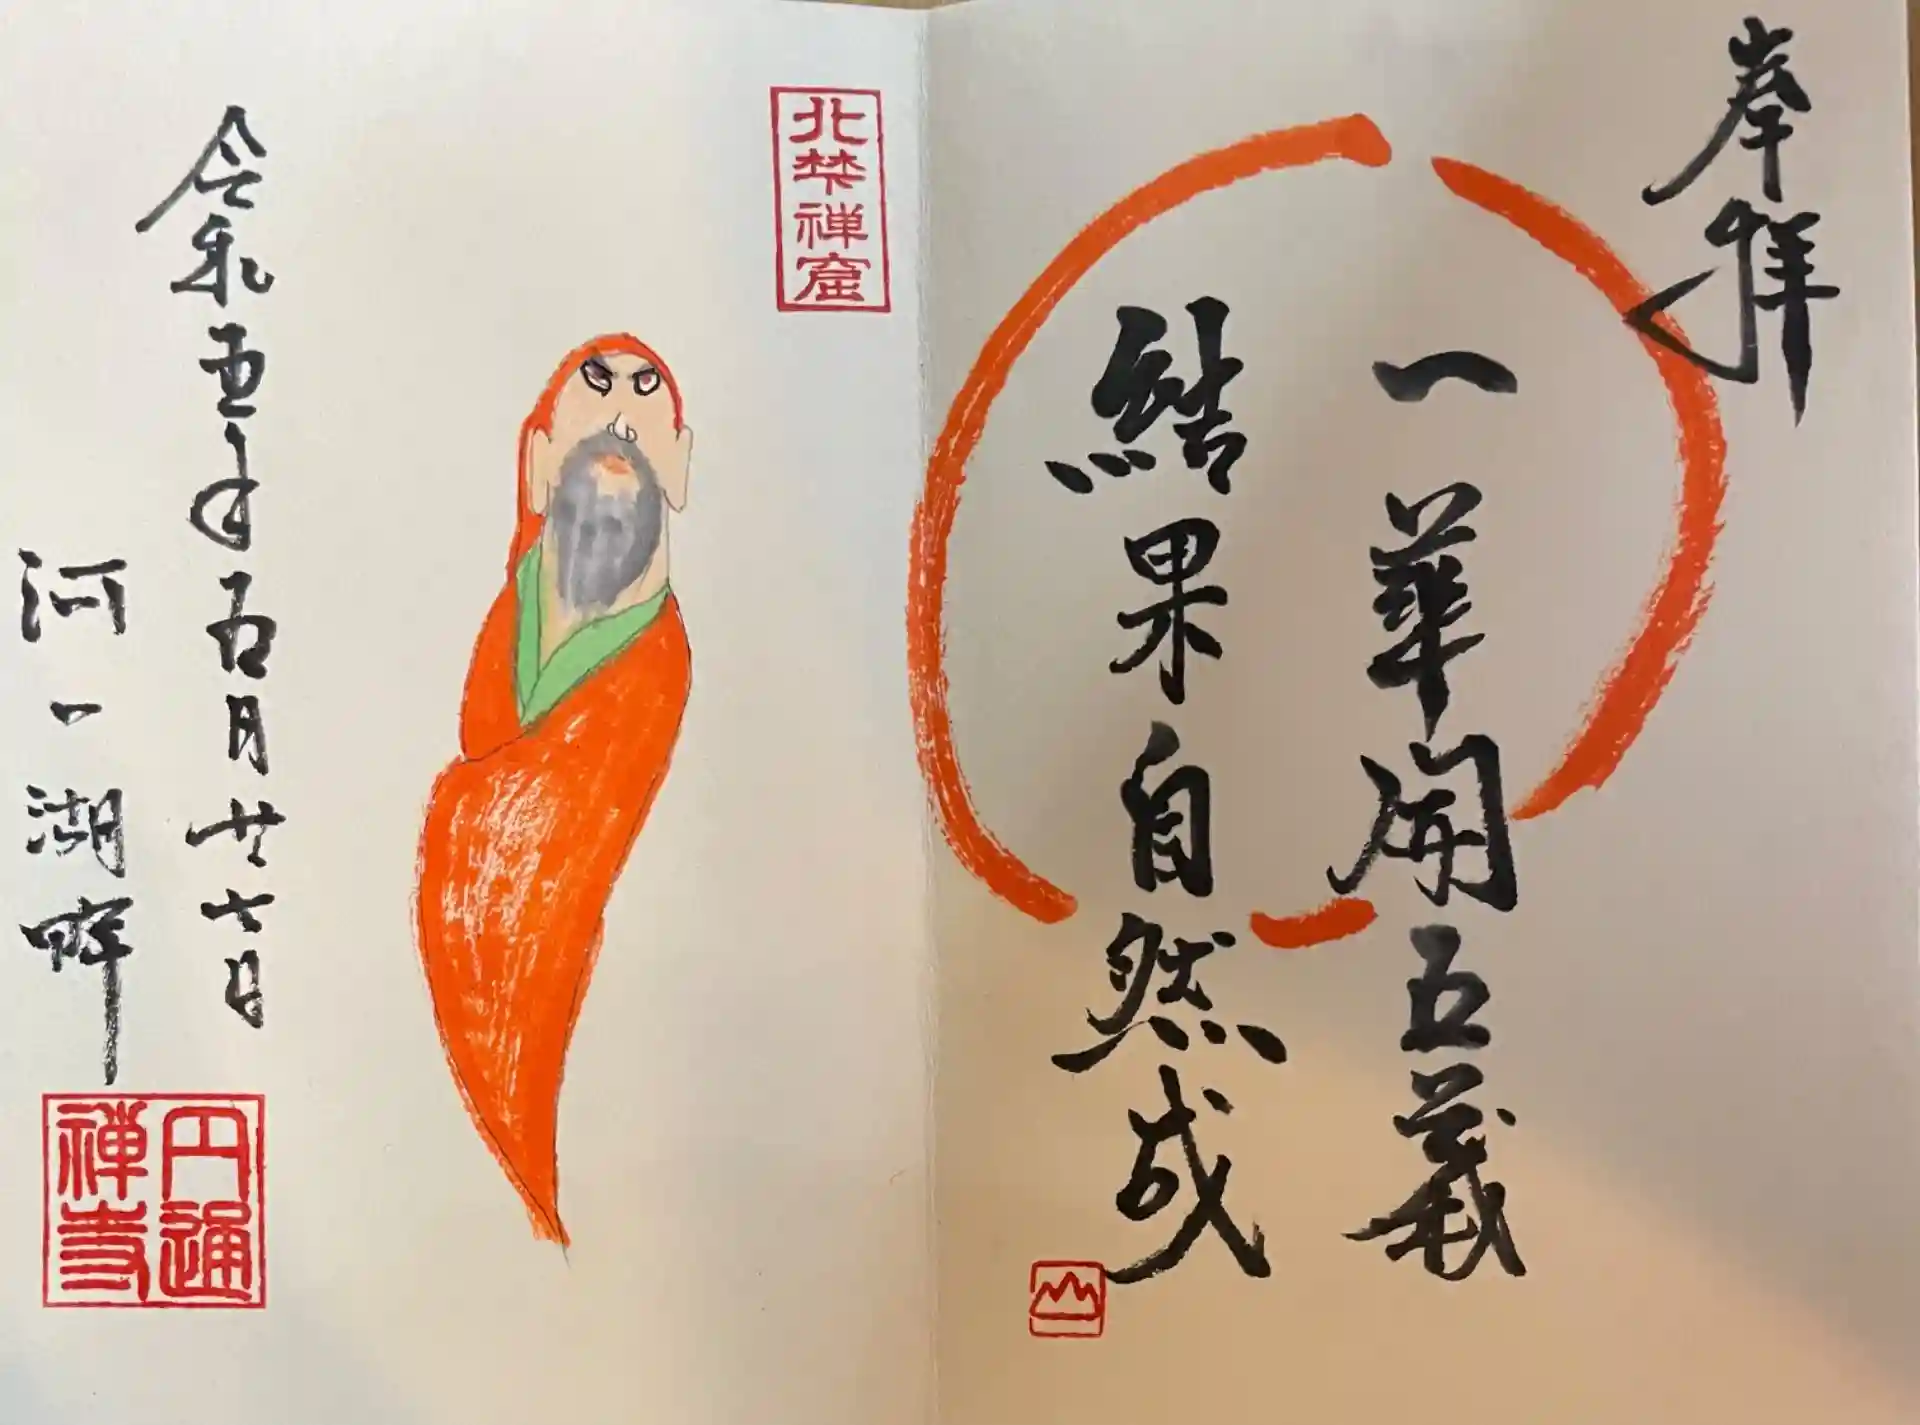 奉拝
一華開五葉
結果自然成
北梺禅窟
令和五年五月廿七日
河口湖畔
円通禅寺